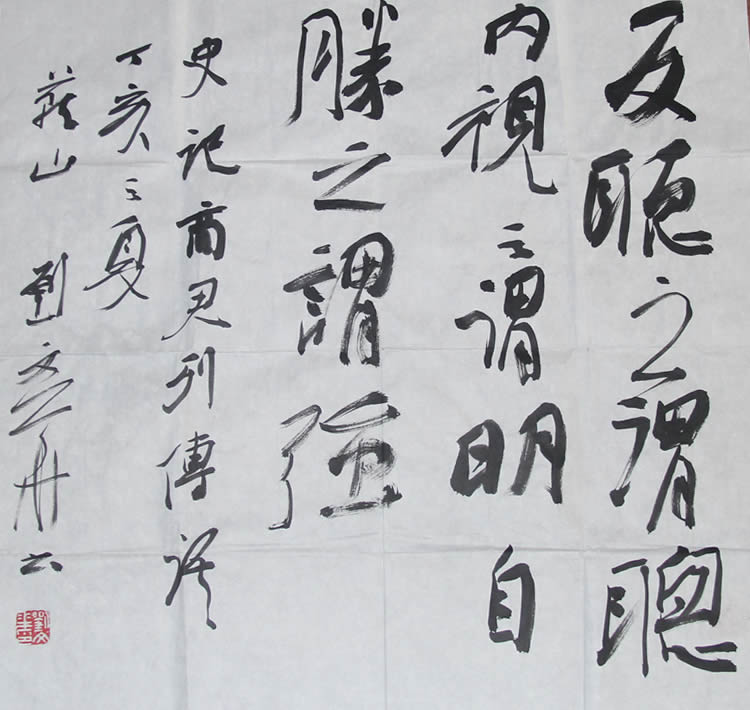 反聽之謂聰
内視之謂明自
勝之謂強
史記商君列傳語
丁亥之夏
山 劉文 书